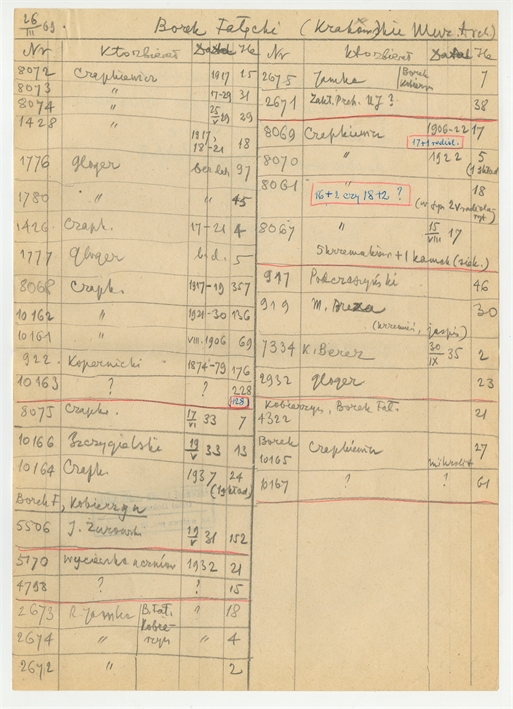 26/III 69. Borek Fałęcki (Krakowskie Muz. Arch)
Nr Kto zbierał Data Ile
8072 Czapkiewicz 1917 15
8073 " 17-29 31
8074 " 25/VI 29 29
1428 " 1917, 18-21 18
1776 Gloger bez daty 97
1780 " " 45
1426 Czapk. 17-21 4
1777 Gloger b.d. 5
8068 Czapk. 1917-19 357
10162 " 1921-30 136
10161 " VIII.1906 69
922 Kopernicki 1874-79 176
10163 ? ? 228
128
8075 Czapk. 17/VI 33 7
10166 Szczygielski 19/V 33 13
10164 Czapk. 1937 24
(1 skład)
Borek F, Kobierzyn
5506 J. Żurowski 19/V 31 152
5170 wycieczka uczniów 1932 21
4798 ? ? 15
2673 R. Jamka B. Fał. Kobierzyn ? 18
2674 " " 4
2672 " 2
Nr Kto zbierał Data Ile
2675 Jamka Borek Kobierz. 7
2671 Zakł. Preh. UJ ? 38
8069 Czapkiewicz 1906-22 17
8070 " 1922 5
(1 skład)
8061 16+2 czy 18+2 ? 18
8067 " 15/VIII 17
5 krzemaków + 1 kamek
947 Podczaszyński 46
919 M. Breza 30
(krzemień, jaspis)
7334 K. Berez 30/IX 35 2
2932 Gloger 23
Kobierzyn, Borek Fał.
4322 21
Borek
10165 Czapkiewicz 27
mikrolit
10167 ? ? 61